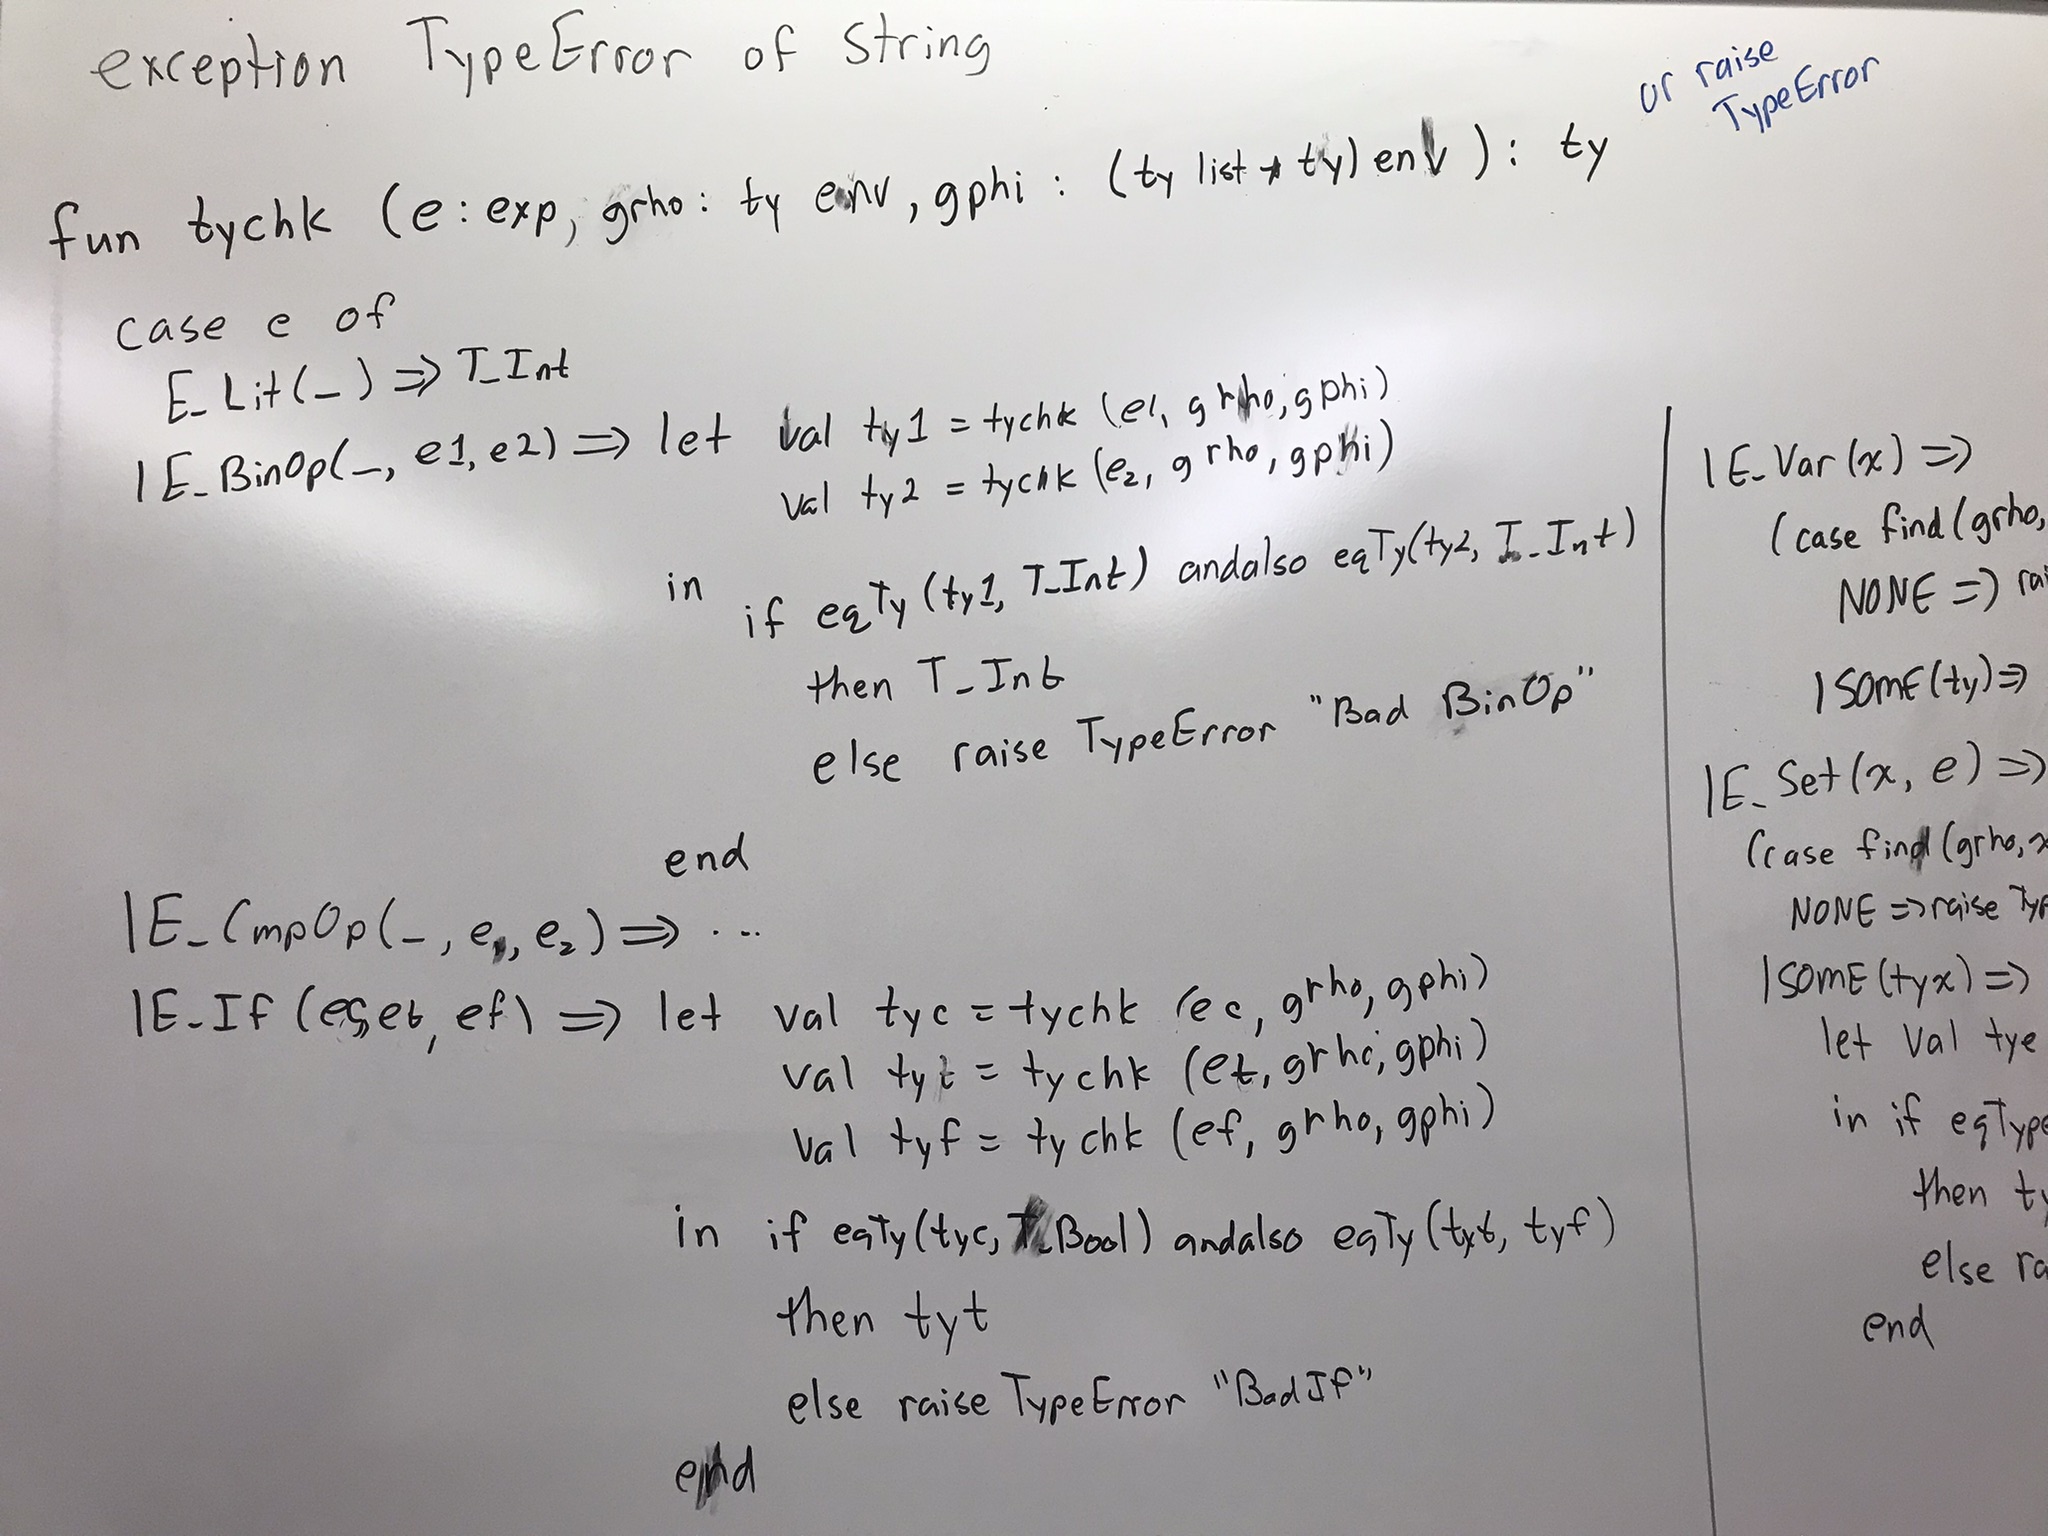 exception TypeError of string
or raise
TypeError
fun tychk (e: exp, grho: ty env, gphi: (ty list * ty) env): ty
case e of
E_Lit(_) => T_Int
|E_BinOp(_, e1, e2) => let val ty1 = tychk (e1, grho, gphi)
val ty2 = tychk (e2, grho, gphi)
in if eqTy (ty1, T_Int) andalso eqTy(ty2, T_Int)
then T_Int
else raise TypeError "Bad BinOp"
end
|E_CmpOp(_, e1, e2) => ...
|E_If (ec, et, ef) => let val tyc = tychk (ec, grho, gphi)
val tyt = tychk (et, grho, gphi)
val tyf = tychk (ef, grho, gphi)
in if eqTy(tyc, T_Bool) andalso eqTy (tyt, tyf)
then tyt
else raise TypeError "BadIf"
end
|E_Var (x) =>
(case find (grho,
NONE =>
|SOME(ty) =>
|E_Set (x, e) =>
(case find (grho, x
NONE => raise
|SOME (tyx) =>
let val tye
in if eqType
then
else
end